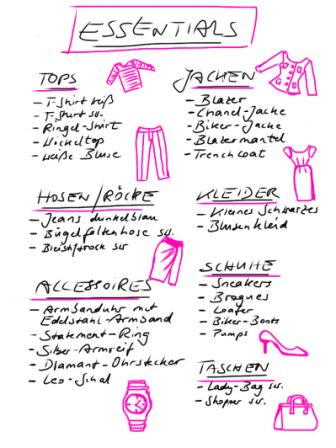 ESSENTIALS
TOPS
- T-Shirt weiß
- T-Shirt sw.
- Ringel-Shirt
- Wickeltop
- weiße Bluse
HOSEN/RÖCKE
- Jeans dunkelblau
- Bügelfaltenhose sw.
- Bleistiftrock sw
ACCESSOIRES
- Armbanduhr mit
Edelstahl-Armband
- Statement-Ring
- Silber-Armreif
- Diamant-Ohrstecker
- Leo-Schal
JACKEN
- Blazer
- Chanel-Jacke
- Biker-Jacke
- Blazermantel
- Trenchcoat
KLEIDER
- Kleines Schwarzes
- Blusenkleid
SCHUHE
- Sneakers
- Brogues
- Loafer
- Biker-Boots
- Pumps
TASCHEN
- Lady-Bag sw.
- Shopper sw.